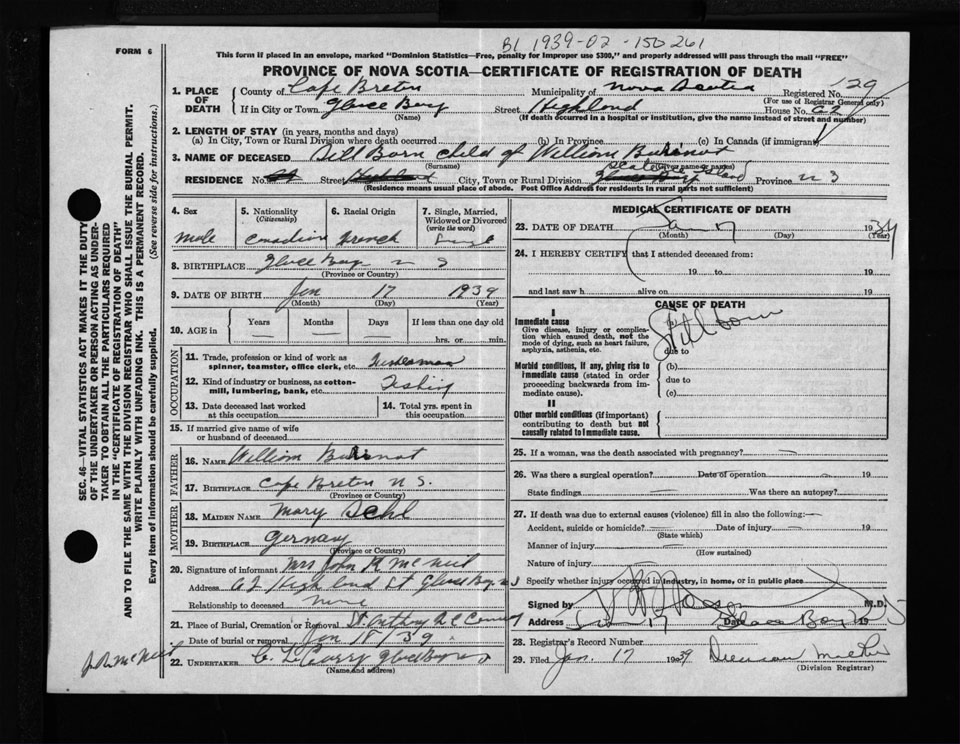 B1 1939-02-150261
FORM 6
This form if placed in an envelope, marked "Dominion Statistics—Free, penalty for improper use $300," and properly addressed will pass through the mail "FREE"
PROVINCE OF NOVA SCOTIA—CERTIFICATE OF REGISTRATION OF DEATH
SEC. 46—VITAL STATISTICS ACT MAKES IT THE DUTY
OF THE UNDERTAKER OR PERSON ACTING AS UNDER-
TAKER TO OBTAIN ALL THE PARTICULARS REQUIRED
IN THE "CERTIFICATE OF REGISTRATION OF DEATH"
AND TO FILE THE SAME WITH THE DIVISION REGISTRAR WHO SHALL ISSUE THE BURIAL PERMIT.
WRITE PLAINLY WITH UNFADING INK. THIS IS A PERMANENT RECORD.
Every item of information should be carefully supplied. (See reverse side for instructions.)
1. PLACE OF DEATH
County of Cape Breton Municipality of Nova Scotia Registered No. 129
(For use of Registrar General only)
If in City or Town Glace Bay Street Highland House No. 62
(Name) (If death occurred in a hospital or institution, give the name instead of street and number)
2. LENGTH OF STAY (in years, months and days)
(a) In City, Town or Rural Division where death occurred (b) In Province (c) In Canada (if immigrant)
3. NAME OF DECEASED Still Born child of William
(Surname) (Given name or names)
RESIDENCE No. Street Highland City, Town or Rural Division Glace Bay Province N S
(Residence means usual place of abode. Post Office Address for residents in rural parts not sufficient)
4. Sex
Male
5. Nationality
(Citizenship)
Canadian
6. Racial Origin
French
7. Single, Married,
Widowed or Divorced
(write the word)
Single
8. BIRTHPLACE Glace Bay N S
(Province or Country)
9. DATE OF BIRTH Jan 17 1939
(Month) (Day) (Year)
10. AGE in Years Months Days If less than one day old
hrs. or min.
OCCUPATION
11. Trade, profession or kind of work as
spinner, teamster, office clerk, etc. Fisherman
12. Kind of industry or business, as cotton-
mill, lumbering, bank, etc. Fishing
13. Date deceased last worked
at this occupation
14. Total yrs. spent in
this occupation
15. If married give name of wife
or husband of deceased
FATHER
16. NAME William
17. BIRTHPLACE Cape Breton N S.
(Province or Country)
MOTHER
18. MAIDEN NAME Mary
19. BIRTHPLACE Germany
(Province or Country)
20. Signature of informant Mrs John R McNeil
Address 62 Highland St Glace Bay N S
Relationship to deceased none
21. Place of Burial, Cremation or Removal St Anthony
Date of burial or removal Jan 18/39
J R McNeil
22. UNDERTAKER C. L Curry Glace Bay N S
(Name and address)
MEDICAL CERTIFICATE OF DEATH
23. DATE OF DEATH Jan 17 1939
(Month) (Day) (Year)
24. I HEREBY CERTIFY that I attended deceased from:
19 to 19
and last saw h alive on 19
CAUSE OF DEATH
I
Immediate cause
Give disease, injury or complica-
tion which caused death, not the
mode of dying, such as heart failure,
asphyxia, asthenia, etc.
(a) Stillborn
due to
Morbid conditions, if any, giving rise to
immediate cause (stated in order
proceeding backwards from im-
mediate cause).
(b)
due to
(c)
II
Other morbid conditions (if important)
contributing to death but not
causally related to immediate cause.
25. If a woman, was the death associated with pregnancy?
26. Was there a surgical operation? Date of operation 19
State findings Was there an autopsy?
27. If death was due to external causes (violence) fill in also the following:
Accident, suicide or homicide? Date of injury 19
(State which)
Manner of injury
(How sustained)
Nature of injury
Specify whether injury occurred in industry, in home, or in public place
Signed by M.D.
Address Date Glace Bay 19
28. Registrar's Record Number
29. Filed Jan. 17 1939
(Division Registrar)